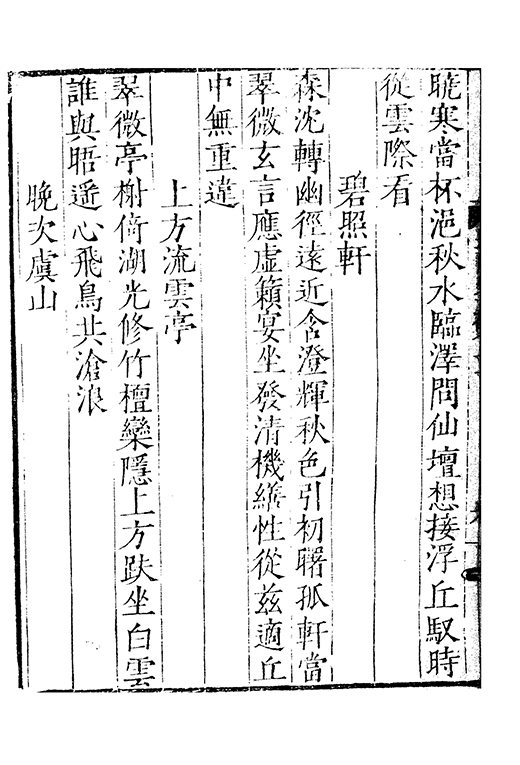 曉寒當杯浥秋水臨澤問仙壇想接浮丘馭時
從雲際看
碧照軒
森沈轉幽徑遠近含澄輝秋色引初曙孤軒當
翠微玄言應虛籟宴坐發清機繕性從兹適丘
中無重違
上方流雲亭
翠微亭榭倚湖光修竹檀欒隱上方趺坐白雲
誰與晤遥心飛鳥共滄浪
晚次虞山